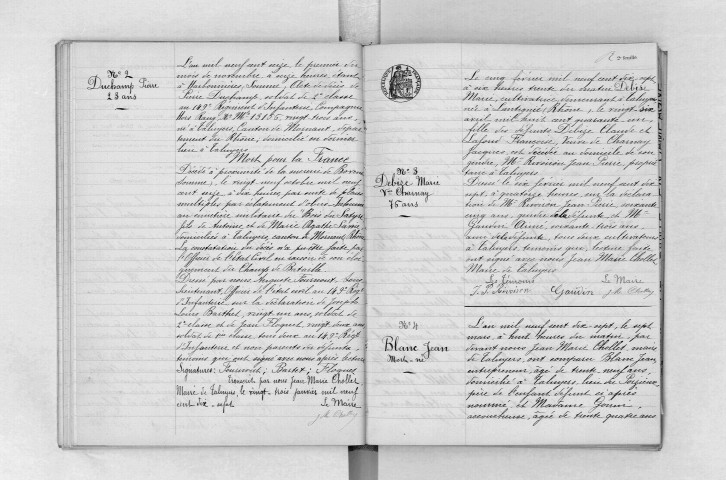 Nº 2
Duchamp Pierre
23 ans
L'an mil neuf cent seize, le premier du
mois de novembre à seize heures, étant
à Harbonnières, Somme, Acte de décès de
Pierre Duchamp, soldat de 2e classe
au 149e Régiment d'Infanterie, Compagnie
Hors Rang Nº Mle 13135, vingt trois ans,
né à Taluyers, Canton de Mornant, dépar-
tement du Rhône, domicilié en dernier
lieu à Taluyers
Mort pour la France
Décédé à proximité de la
Somme, le vingt octobre mil neuf
cent seize, à dix heures, par suite de plaies
multiples par éclatement d'obus. Inhumé
au cimetière militaire du Bois du Satyre
fils de Antoine et de Marie Agathe
domiciliés à Taluyers, canton de Mornant, Rhône
La constatation du décès n'a pu être faite par
l'Officier de l'état Civil en raison de son éloi-
gnement du Champ de Bataille
Dressé par nous Auguste Sous
Lieutenant, Officier de l'état civil au 149e Régt
d'Infanterie, sur la déclaration de Joseph
Louis Barthel, vingt un ans, soldat de
2e classe et de Jean Floquet, vingt deux ans
soldat de 1ère classe, tous deux au 149e Régt
d'Infanterie et non parents du défunt,
témoins qui ont signé avec nous après lecture
Signatures:
Transcrit par nous Jean Marie Chollet
Maire de Taluyers, le vingt-trois janvier mil neuf
cent dix-sept
Le Maire
Nº 3
Debize Marie
Vve Charnay
75 ans
Le cinq février mil neuf cent dix sept
à six heures trente du matin Debize
Marie, cultivatrice, demeurant à Taluyers
née à Lantignié, Rhône, le vingt six
avril mil huit cent quarante un,
fille des défunts Debize Claude et
Lafond Françoise, veuve de Charnay
Jacques, est décédée au domicile de son
gendre, Mr Rivoison Jean Pierre, proprié-
taire à Taluyers
Dressé le six février mil neuf cent dix
sept, à quatorze heures, sur la déclara-
tion de Mr Jean Pierre, soixante
cinq ans, gendre de la défunte, et Mme
Gaudin Anne, soixante trois ans,
amie de la défunte, tous deux cultivateurs
à Taluyers, témoins qui, lecture faite,
ont signé avec nous Jean Marie Chollet
Maire de Taluyers
Les témoins
Le Maire
Nº 4
Blanc Jean
Mort-né
L'an mil neuf cent dix sept, le sept
mars, à huit heures du matin, par
devant nous Jean Marie Chollet, maire
de Taluyers, ont comparu Blanc Jean
entrepreneur, âgé de trente neuf ans,
domicilié à Taluyers,
père de l'enfant défunt ci après
nommé, et Madame
accoucheuse, âgée de trente quatre ans